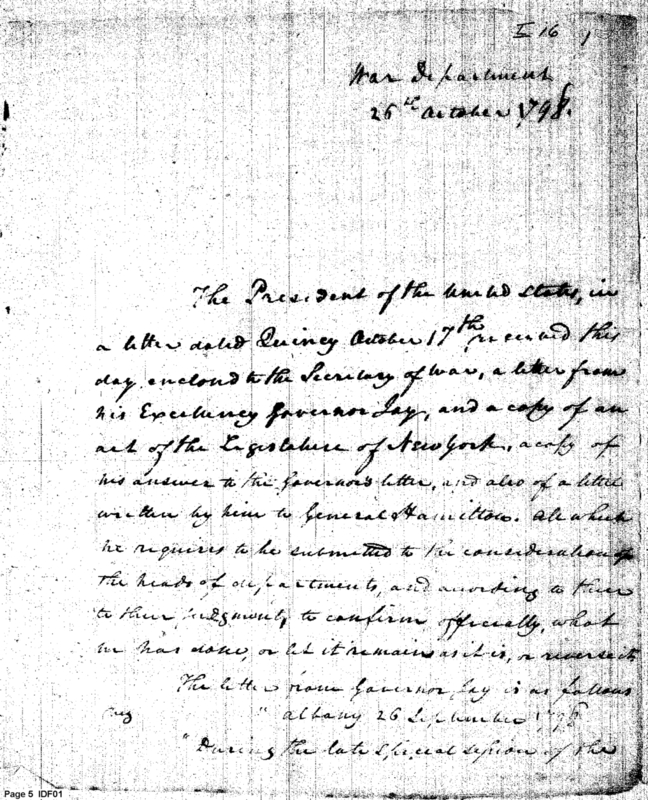 I 16 1
War Department
26th October 1798.
The President of the United States, in
a letter dated Quincy October 17th received this
day enclosed to the Secretary of War, a letter from
his Excellency Governor Jay, and a copy of an
act of the Legislature of New York, a copy of
his answer to the Governor's letter, and also of a letter
written by him to General Hamilton. All which
he requires to be submitted to the consideration of
the heads of departments, and according to their
to their judgment, to confirm officially, what
he has done, or let it remain as it is, or reverse it
The letter from Governor Jay is as follows
" Albany 26 September 1798
"During the late special session of the
Page 5 IDF01